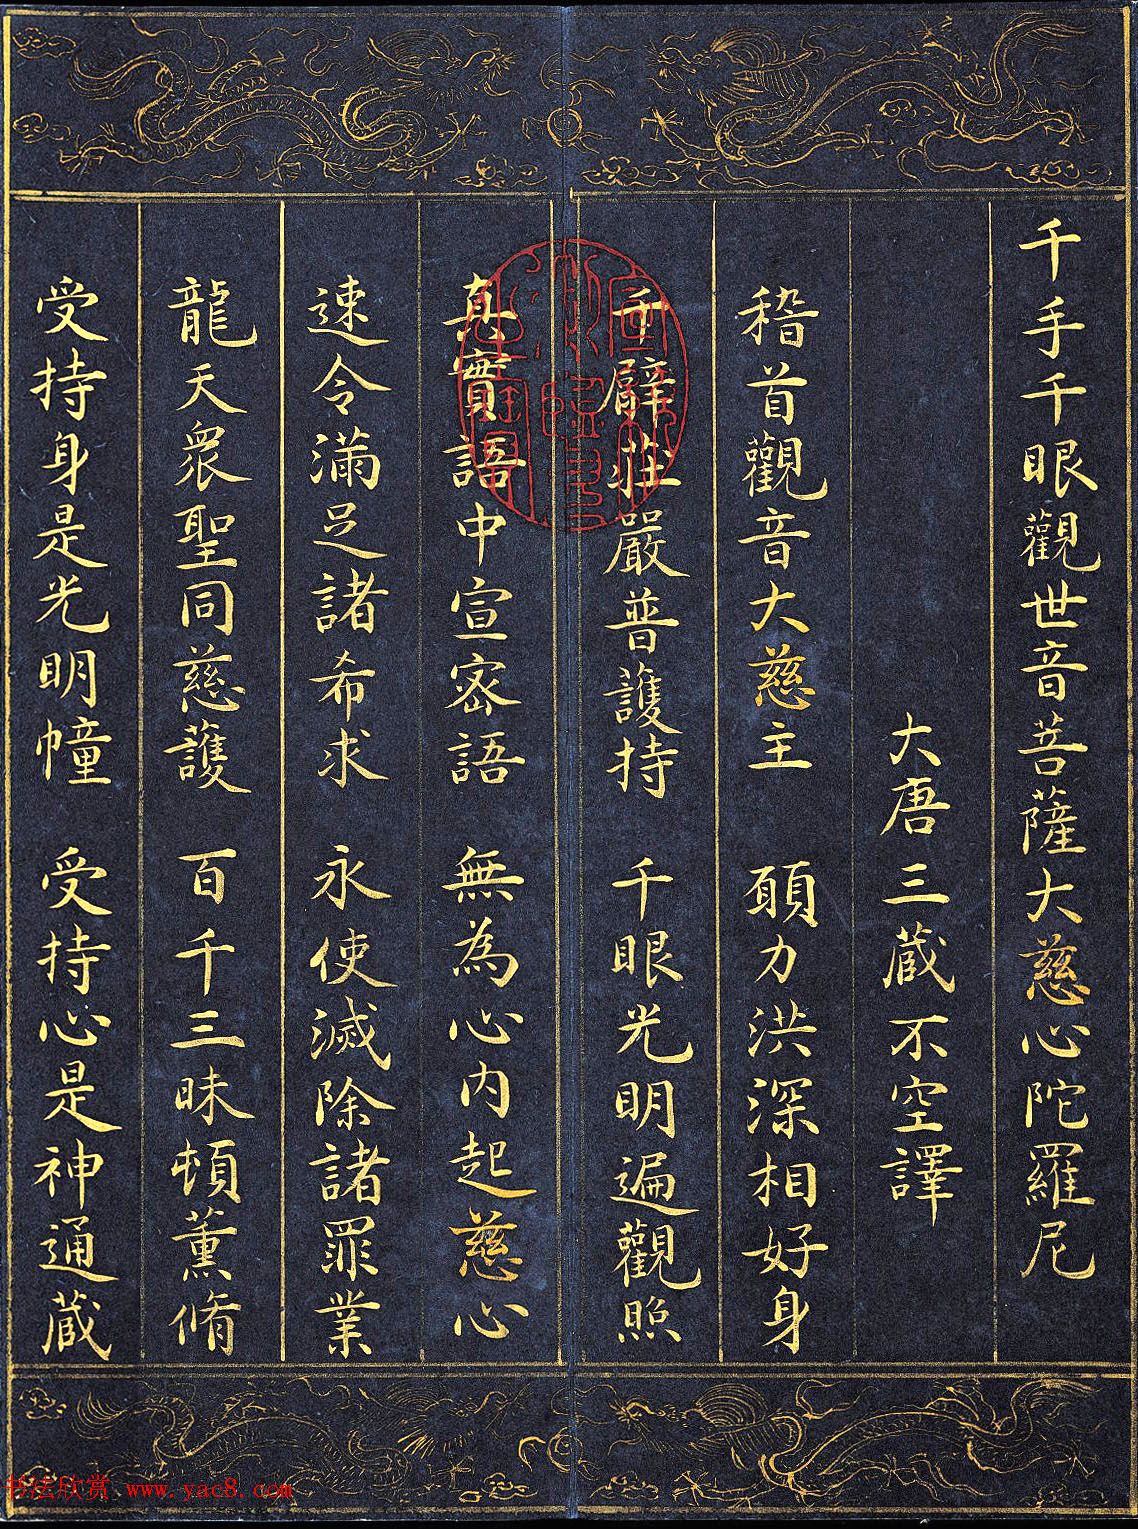 千手千眼觀世音菩薩大慈心陀羅尼
大唐三藏不空譯
稽首觀音大慈主 願力洪深相好身
千臂莊嚴普護持 千眼光明遍觀照
真實語中宣密語 無為心內起慈心
速令滿足諸希求 永使滅除諸罪業
龍天眾聖同慈護 百千三昧頓薰脩
受持身是光明幢 受持心是神通藏
书法欣赏 www.yac8.com